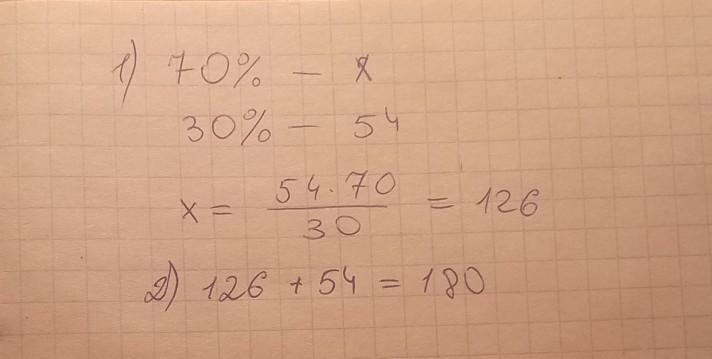 1) 70% — x
30% — 54
x = 54·70/30 = 126
2) 126 + 54 = 180